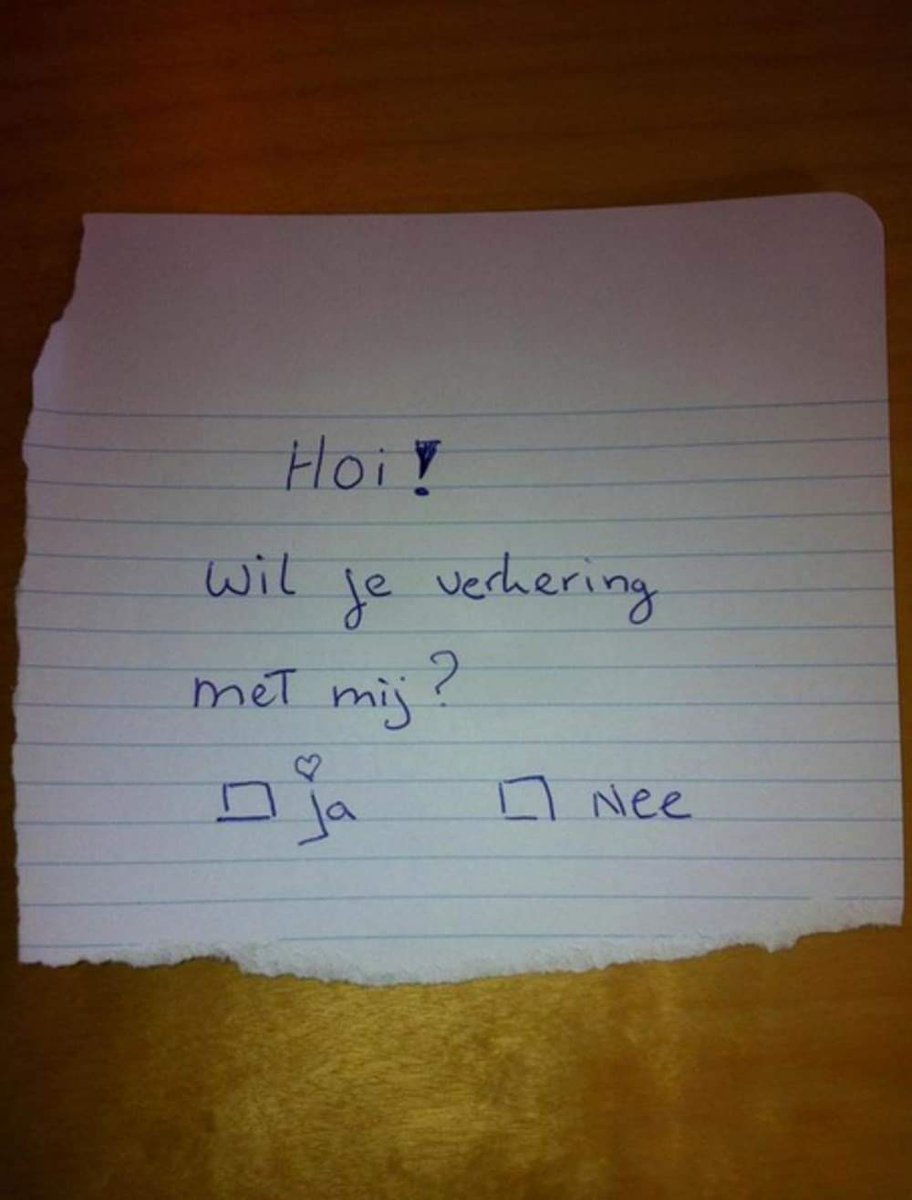 Hoi!
Wil je verkering
met mij?
☐ ja ☐ Nee